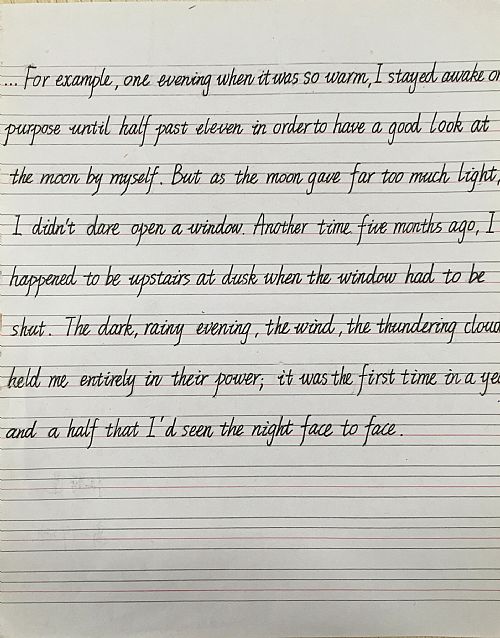 ... For example, one evening when it was so warm, I stayed awake on
purpose until half past eleven in order to have a good look at
the moon by myself. But as the moon gave far too much light,
I didn't dare open a window. Another time five months ago, I
happened to be upstairs at dusk when the window had to be
shut. The dark, rainy evening, the wind, the thundering cloud
held me entirely in their power; it was the first time in a ye
and a half that I'd seen the night face to face.